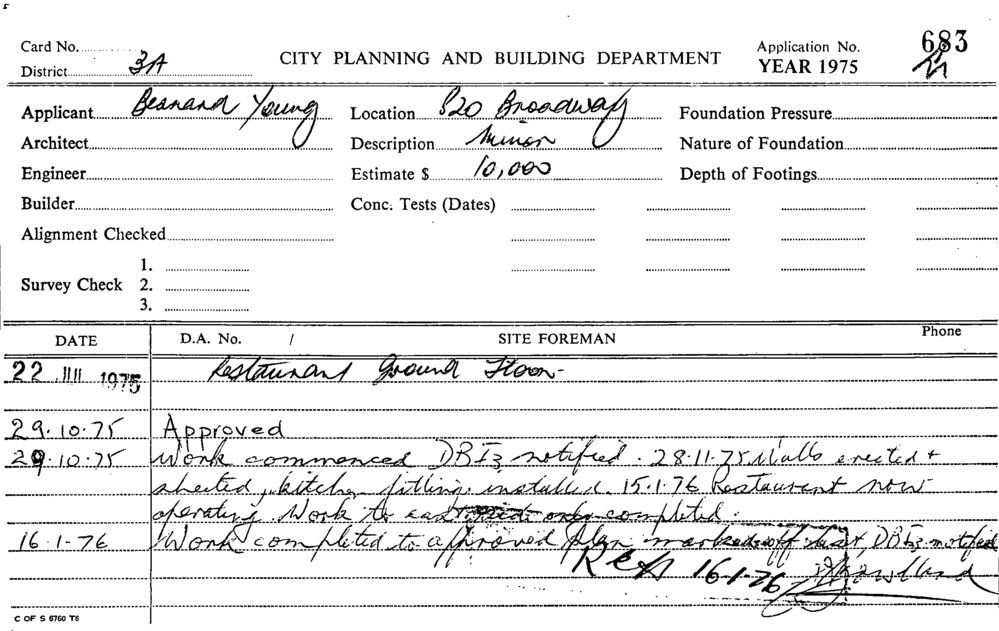 Card No.
District 3A
CITY PLANNING AND BUILDING DEPARTMENT
Application No. 683
YEAR 1975
Applicant Bernard Young
Location 820 Broadway
Foundation Pressure
Architect
Description Minor
Nature of Foundation
Engineer
Estimate $ 10,000
Depth of Footings
Builder
Conc. Tests (Dates)
Alignment Checked
Survey Check 1.
2.
3.
DATE D.A. No. / SITE FOREMAN Phone
22 JUL 1975 Restaurant Ground Floor
29.10.75 Approved
29.10.75 Work commenced DBI3 notified. 28.11.75 Walls erected +
sheeted, kitchen fitting installed. 15.1.76 Restaurant now
operating. Work to only completed.
16.1.76 Work completed to approved plan marked off, DBI3 notified
16.1.76
C OF S 6760 T6